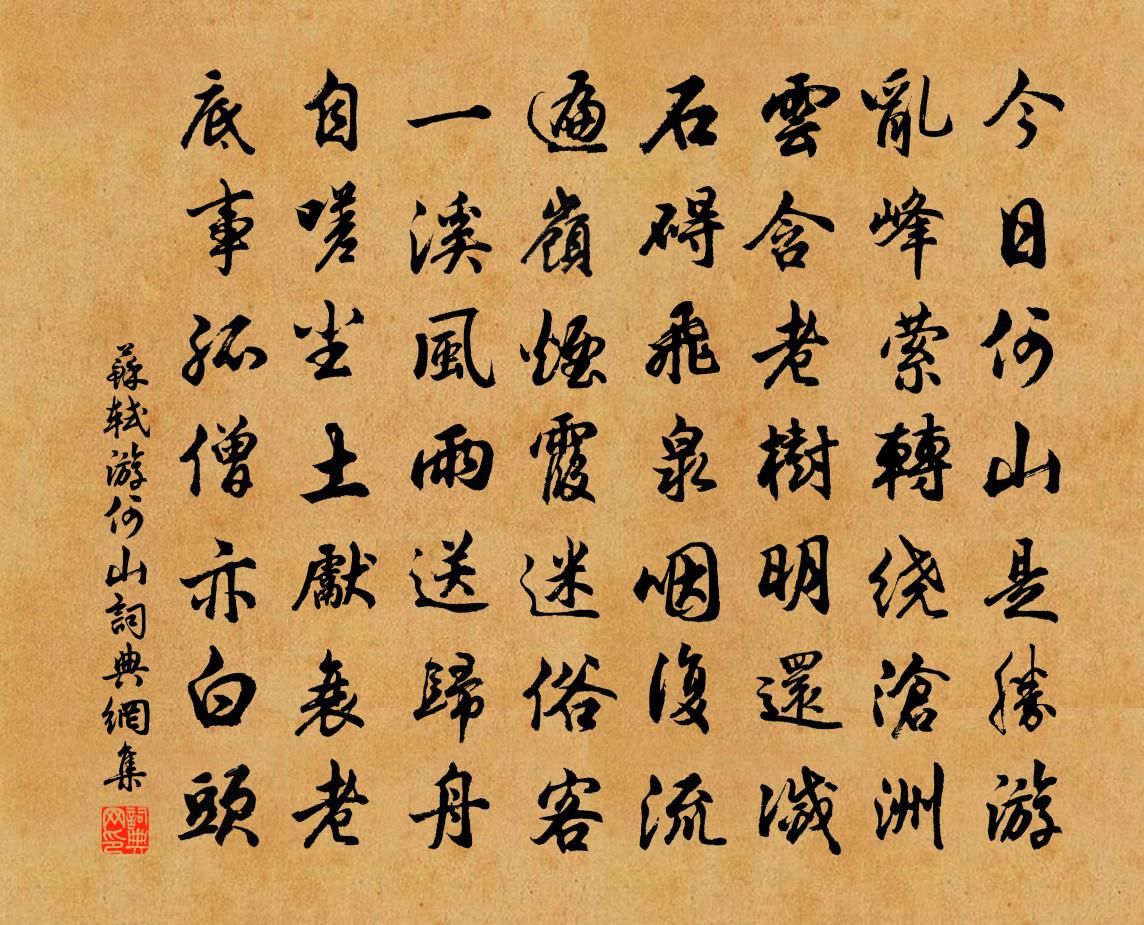 今日何山是勝游
亂峰萦轉绕滄洲
雲含老樹明還滅
石碍飛泉咽復流
遍嶺煙霞迷俗客
一溪風雨送歸舟
自嗟尘土獻衰老
底事孤僧亦白頭
蘇軾游何山詞典網集
詞典网印